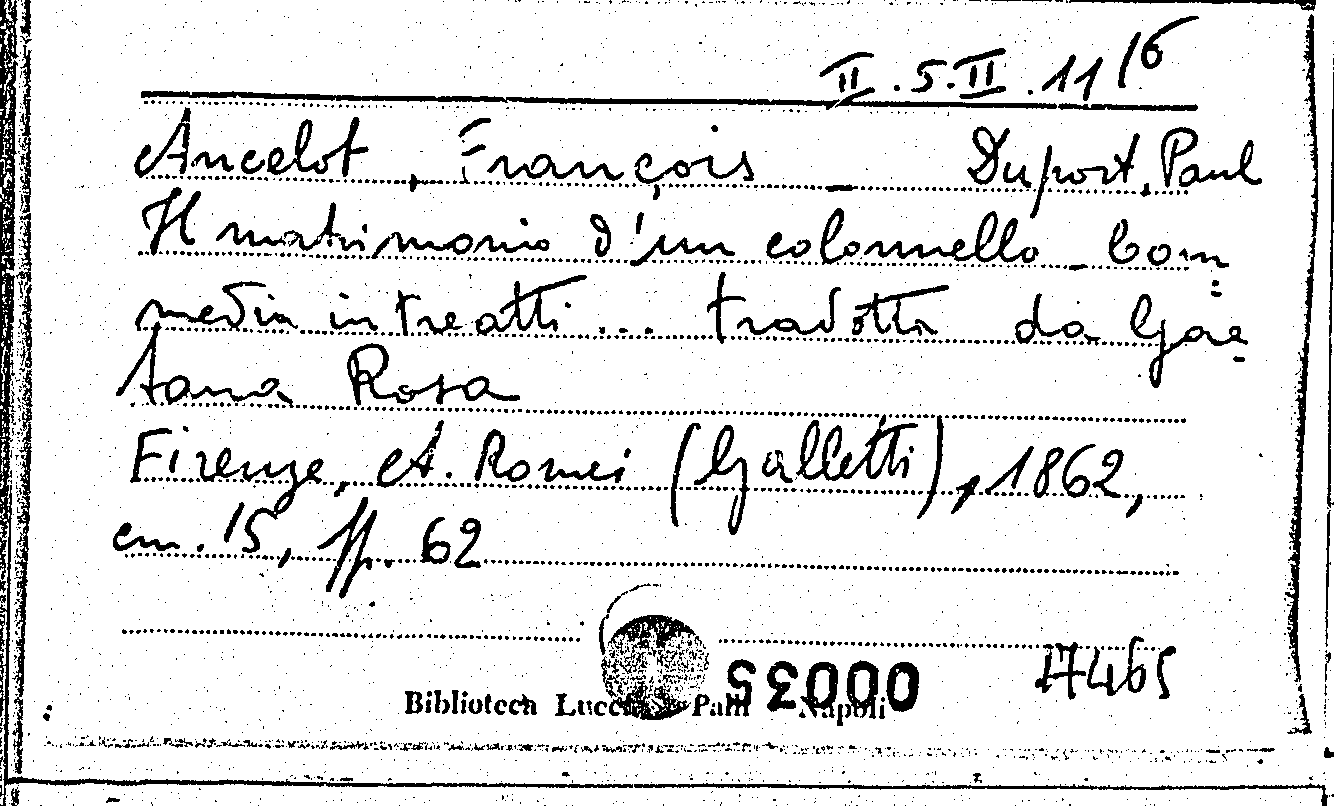 II.5.II.11/6
Ancelot, François – Duport, Paul
Il matrimonio d'un colonnello – Com=
media in tre atti ... tradotta da Gae=
tana Rosa
Firenze, A. Romei (Galletti), 1862,
cm. 15, pp. 62
00035 17465
Biblioteca Lucchesi Palli Napoli